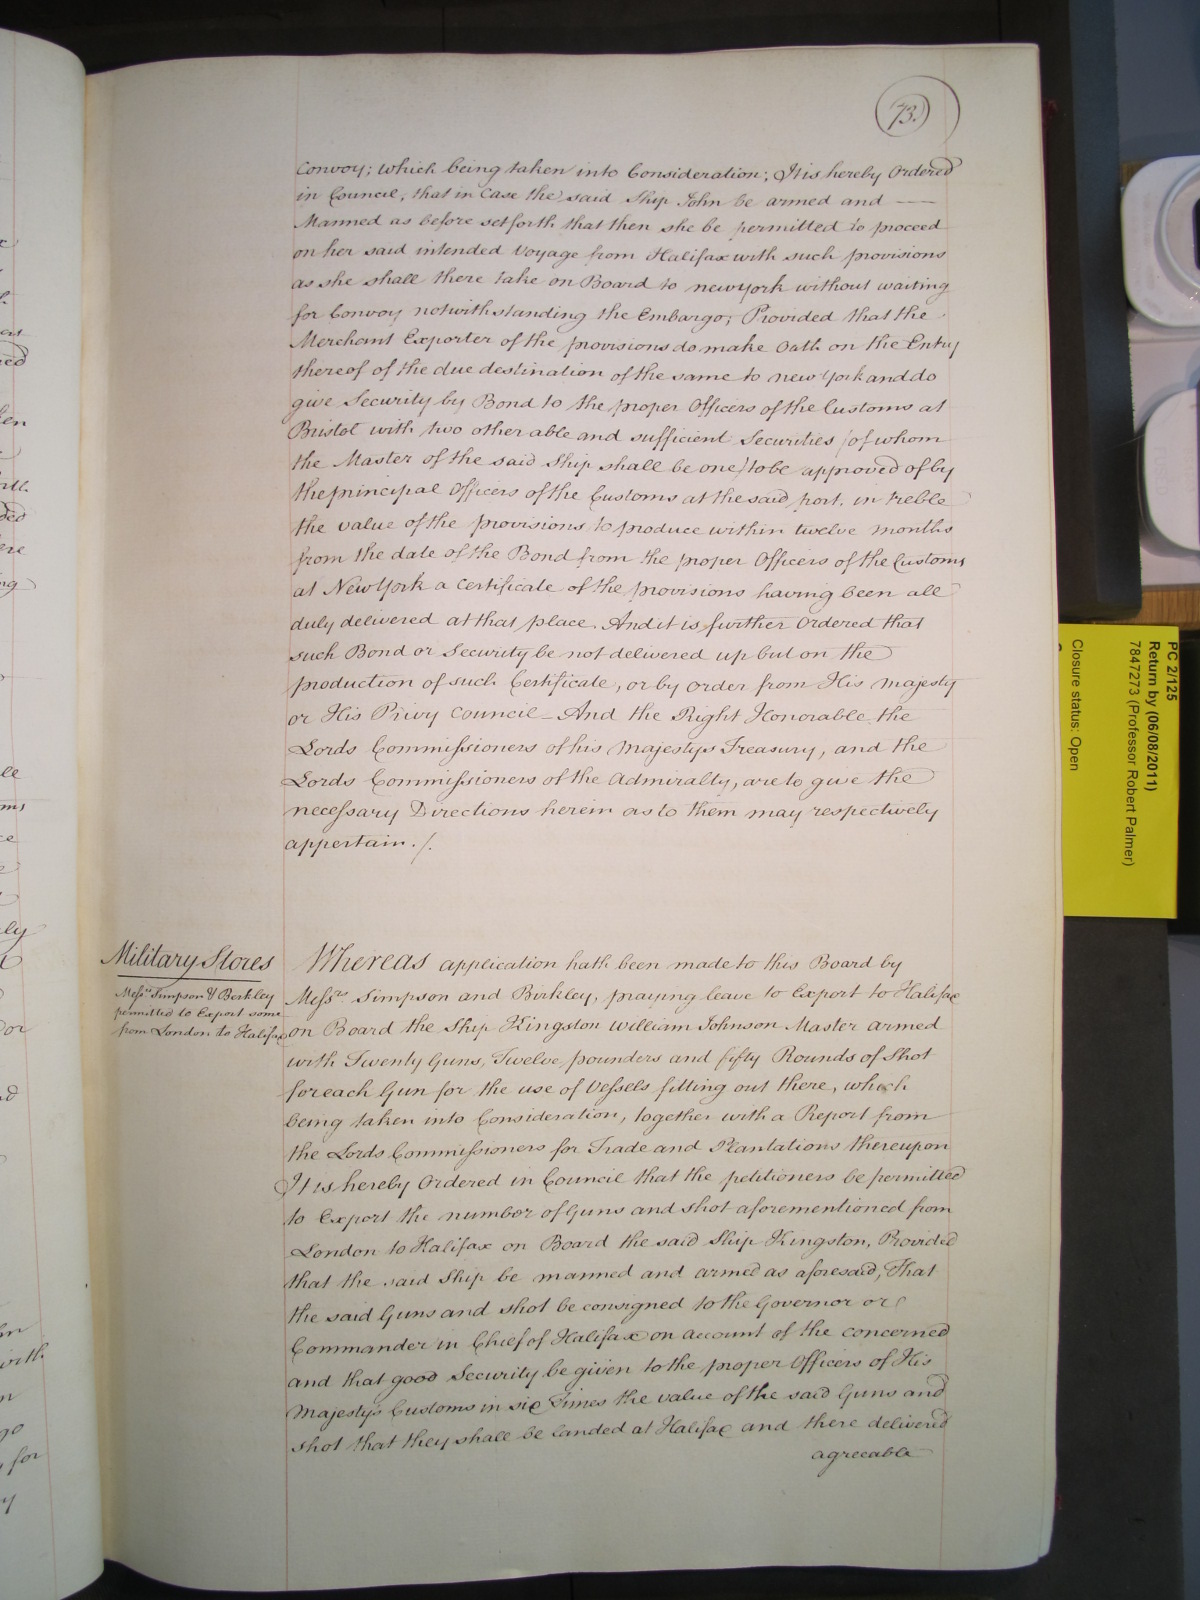 73.
Convoy; which being taken into Consideration; It is hereby Ordered
in Council, that in Case the said Ship John be armed and —
Manned as before setforth that then she be permitted to proceed
on her said intended Voyage from Halifax with such provisions
as she shall there take on Board to newyork without waiting
for Convoy notwithstanding the Embargo; Provided that the
Merchant Exporter of the provisions do make Oath on the Entry
thereof of the due destination of the same to new York and do
give Security by Bond to the proper Officers of the Customs at
Bristol with two other able and sufficient Securities /of whom
the Master of the said Ship shall be one/ to be approved of by
the principal Officers of the Customs at the said port, in treble
the value of the provisions to produce within twelve months
from the date of the Bond from the proper Officers of the Customs
at New York a Certificate of the provisions having been all
duly delivered at that place. And it is further Ordered that
such Bond or Security be not delivered up but on the
production of such Certificate, or by Order from His Majesty
or His Privy Council – And the Right Honorable the
Lords Commissioners of his Majestys Treasury, and the
Lords Commissioners of the Admiralty, are to give the
necessary Directions herein as to them may respectively
appertain. /.
Military Stores
Messrs Simpson & Berkley
permitted to Export some
from London to Halifax
Whereas application hath been made to this Board by
Messrs Simpson and Birkley, praying leave to Export to Halifax
on Board the Ship Kingston William Johnson Master armed
with Twenty Guns, Twelve pounders and fifty Rounds of Shot
for each Gun for the use of Vessels fitting out there, which
being taken into Consideration, together with a Report from
the Lords Commissioners for Trade and Plantations thereupon
It is hereby Ordered in Council that the petitioners be permitted
to Export the number of Guns and shot aforementioned from
London to Halifax on Board the said Ship Kingston, Provided
that the said Ship be manned and armed as aforesaid, That
the said Guns and shot be consigned to the Governor or
Commander in Chief of Halifax on account of the concerned
and that good Security be given to the proper Officers of His
Majesty's Customs in six Times the value of the said Guns and
shot that they shall be landed at Halifax and there delivered
agreeable
PC 2/125
Return by (06/08/2011)
7847273 (Professor Robert Palmer)
Closure status: Open